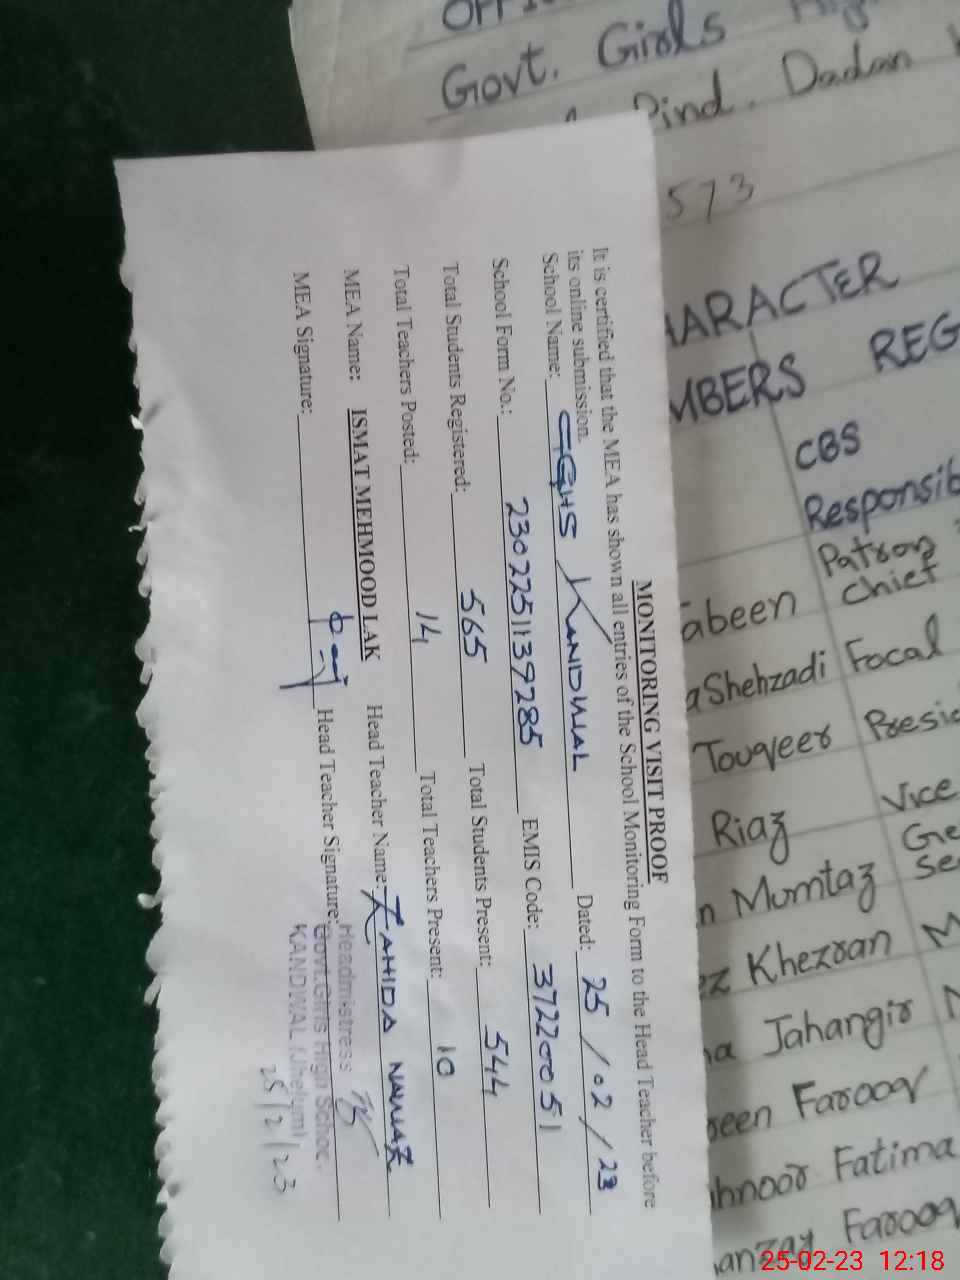 MONITORING VISIT PROOF
It is certified that the MEA has shown all entries of the School Monitoring Form to the Head Teacher before
its online submission.
School Name: GGHS KANDWAL Dated: 25/02/23
School Form No.: 2302251139285 EMIS Code: 37220051
Total Students Registered: 565 Total Students Present: 544
Total Teachers Posted: 14 Total Teachers Present: 10
MEA Name: ISMAT MEHMOOD LAK Head Teacher Name: ZAHIDA NAWAZ
MEA Signature: Head Teacher Signature:
Headmistress
Govt. Girls High School
KANDWAL (Jhelum)
25/2/23
Govt. Girls
Pind. Dadan
573
ARACTER
MBERS REG
CBS
Responsib
Patron
abeen Chief
aShehzadi Focal
Touqeer Presid
Riaz Vice
Ge
n Mumtaz Se
ez Khezran M
na Jahangir
een Farooq
hnoor Fatima
anzay Farooq
25-02-23 12:18